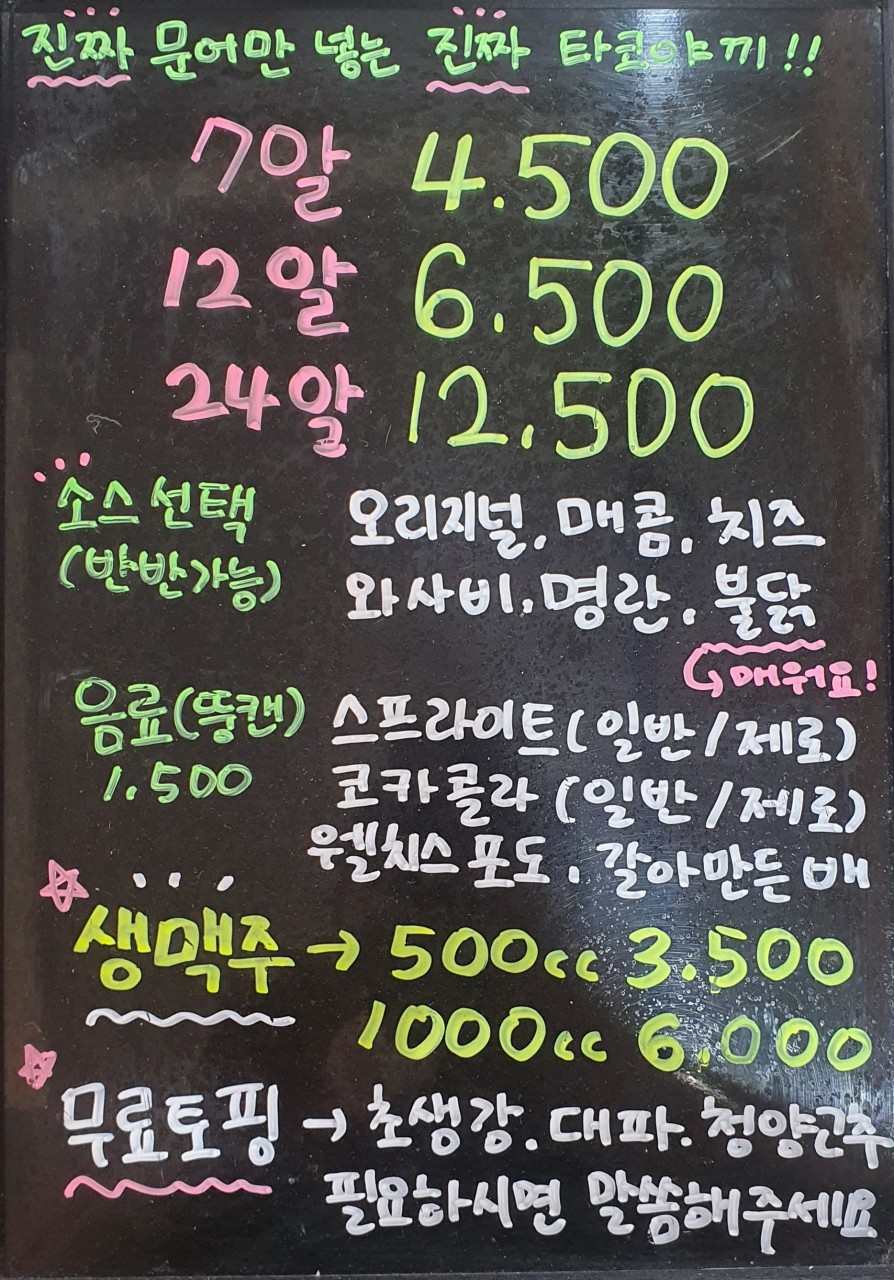 진짜 문어만 넣는 진짜 타코야끼!!
7알 4.500
12알 6.500
24알 12.500
소스 선택 오리지널, 매콤, 치즈
(반반가능) 와사비, 명란, 불닭
매워요!
음료(뚱캔) 스프라이트(일반/제로)
1.500 코카콜라 (일반/제로)
웰치스 포도, 갈아만든 배
생맥주→500cc 3.500
1000cc 6.000
무료토핑→초생강.대파.청양고추
필요하시면 말씀해주세요